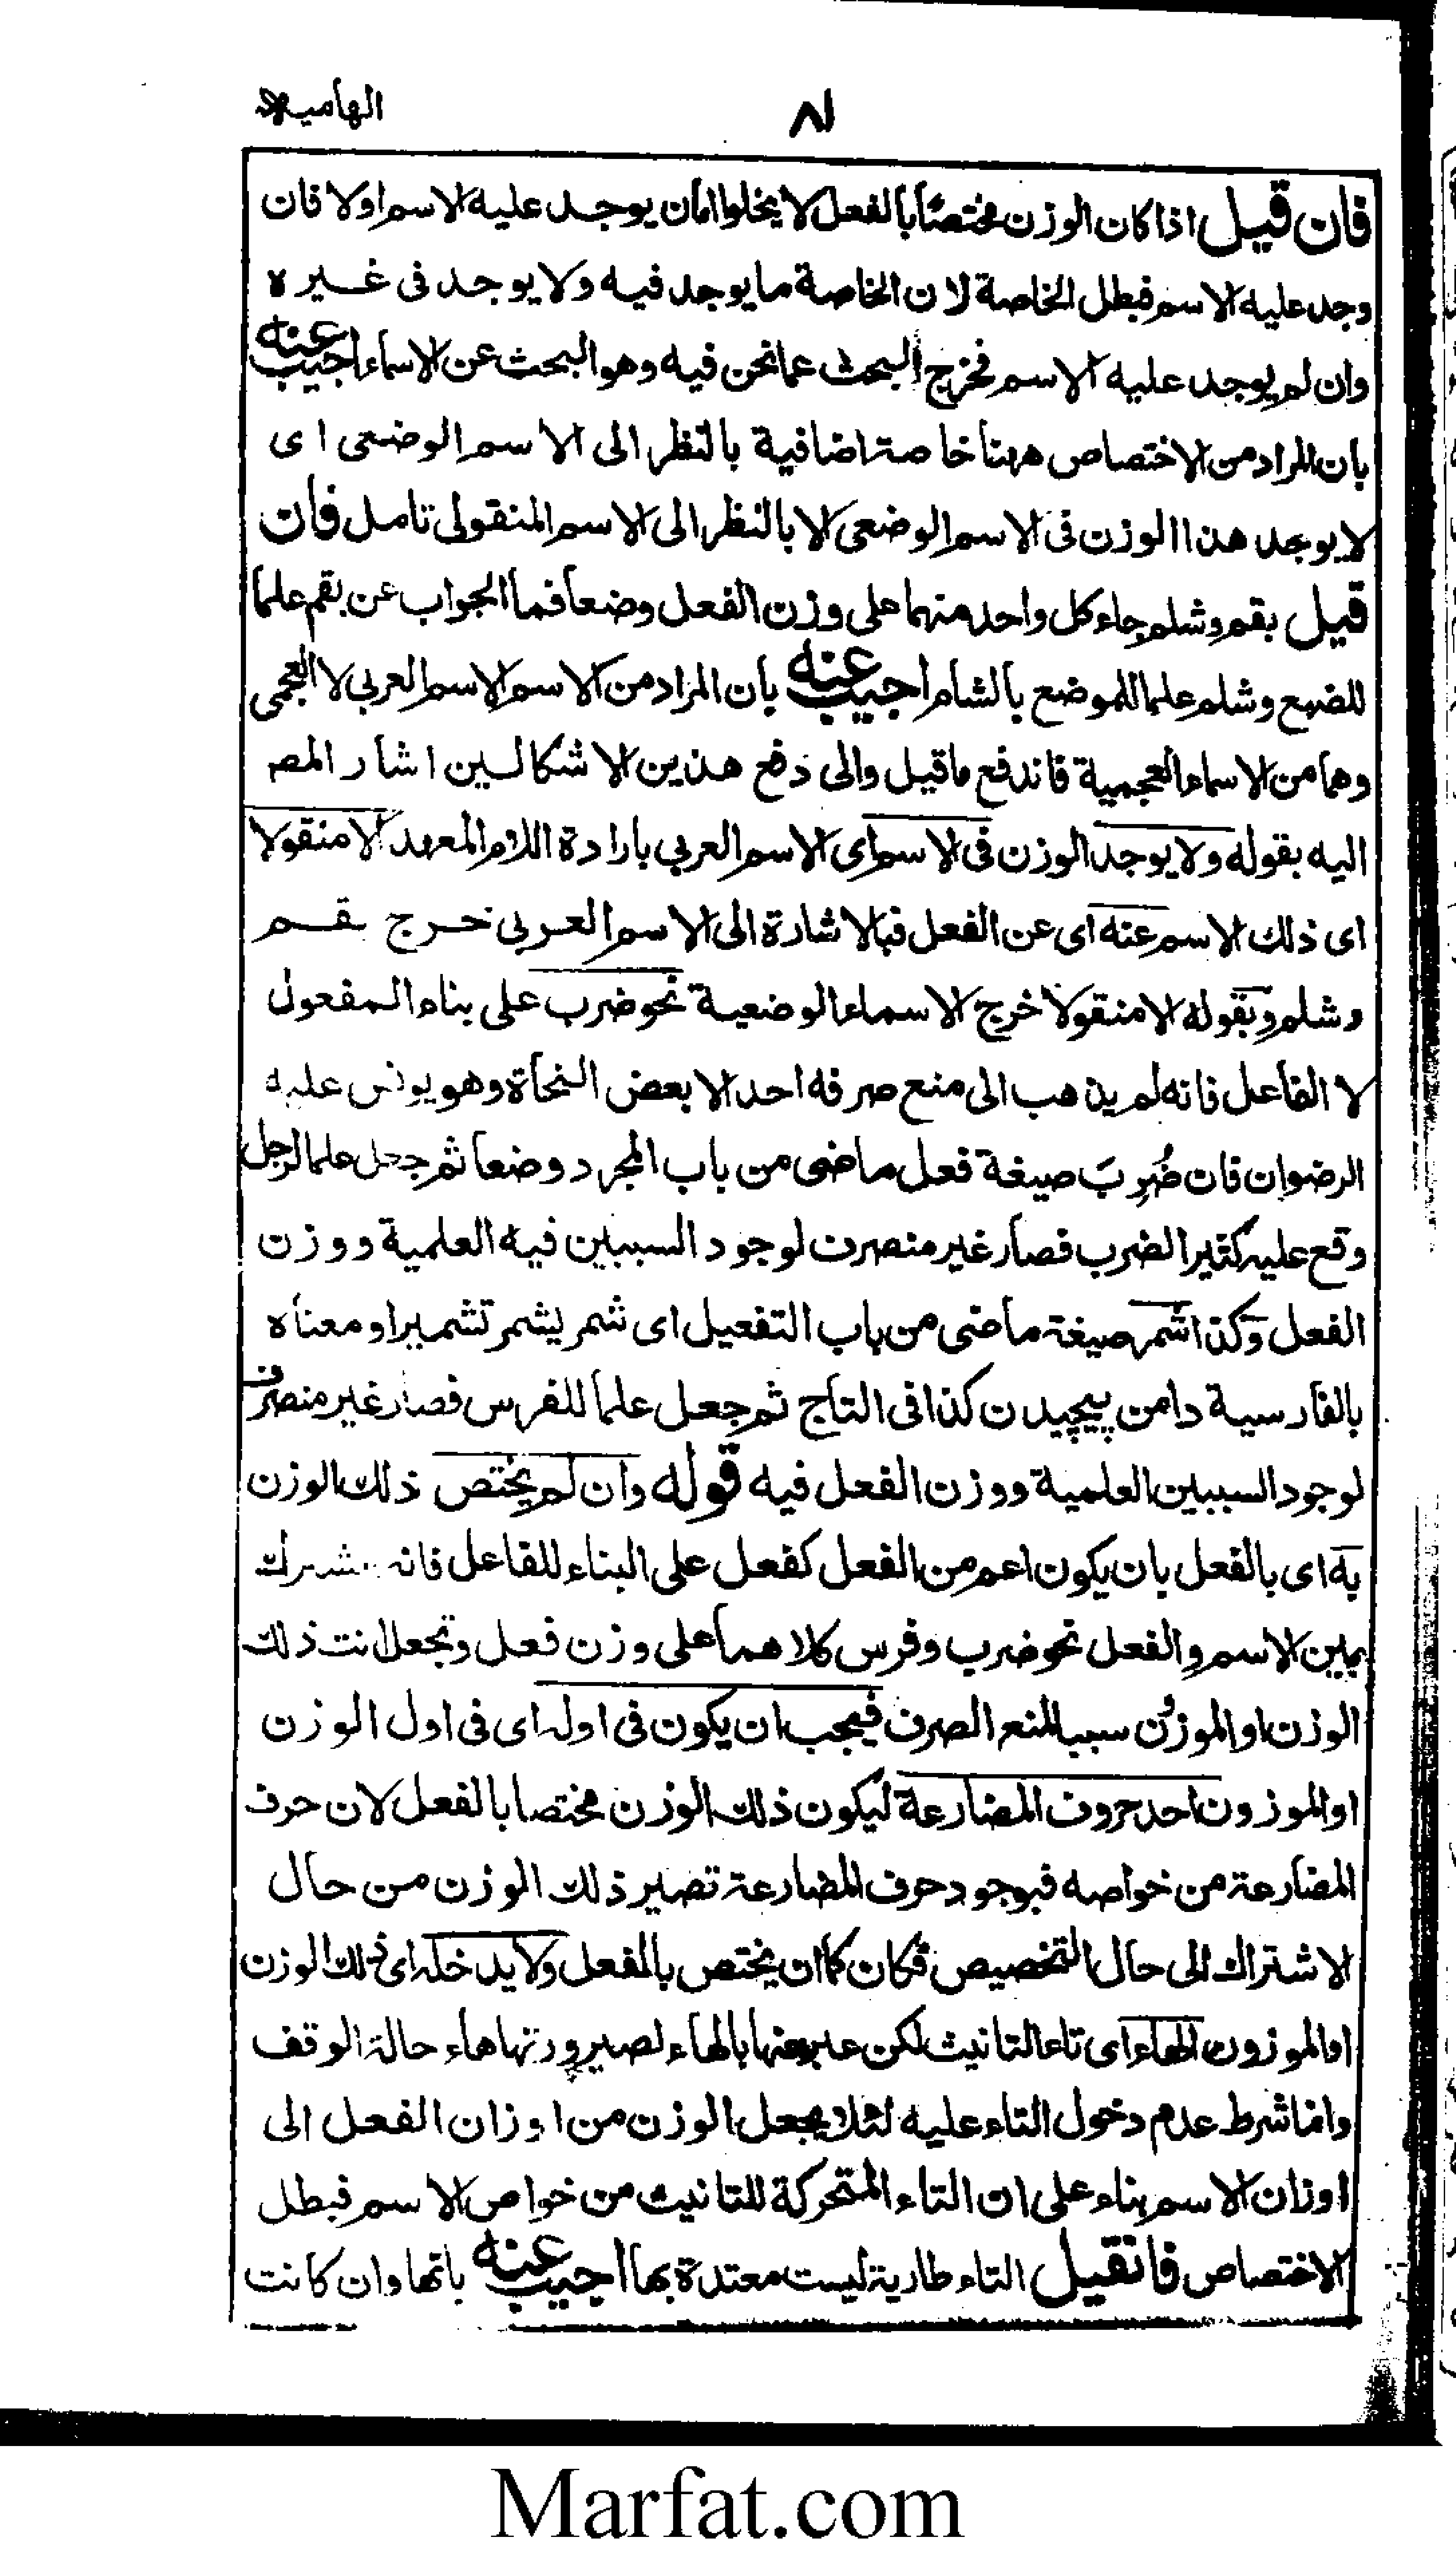 الهامية
٨١
فان قيل اذا كان الوزن مختصا بالفعل لا يخلوا امان يوجد عليه الاسم اولا فان
وجد عليه الاسم فبطل الخاصة لان الخاصة ما يوجد فيه ولا يوجد فى غيره
وان لم يوجد عليه الاسم فخرج البحث عما نحن فيه وهو البحث عن الاسماء اجيب عنه
بان المراد من الاختصاص ههنا خاصة اضافية بالنظر الى الاسم الوضعى اى
لا يوجد هذا الوزن فى الاسم الوضعى لا بالنظر الى الاسم المنقولى تامل فان
قيل بقم وشلم جاء كل واحد منهما على وزن الفعل وضعا فما الجواب عن بقم علما
للضبع وشلم علما للموضع بالشام اجيب عنه بان المراد من الاسم الاسم العربى لا العجمى
وهما من الاسماء العجمية فاندفع ما قيل والى دفع هذين الاشكالين اشار المص
اليه بقوله ولا يوجد الوزن فى الاسم اى الاسم العربى بارادة اللام المعهد الا منقولا
اى ذلك الاسم عنه اى عن الفعل فبالاشارة الى الاسم العربى خرج بقم
وشلم وبقوله الا منقولا خرج الاسماء الوضعية نحو ضرب على بناء المفعول
لا الفاعل فانه لم يذهب الى منع صرفه احد الا بعض النحاة وهو يونس عليه
الرضوان فان ضُرِبَ صيغة فعل ماضى من باب المجرد وضعا ثم جعل علما لرجل
وقع عليه كثير الضرب فصار غير منصرف لوجود السببين فيه العلمية ووزن
الفعل وكذا شمر صيغة ماضى من باب التفعيل اى شمر يشمر تشميرا ومعناه
بالفارسية دامن پيچيدن كذا فى التاج ثم جعل علما للفرس فصار غير منصرف
لوجود السببين العلمية ووزن الفعل فيه قوله وان لم يختص ذلك الوزن
به اى بالفعل بان يكون اعم من الفعل كفعل على البناء للفاعل فانه مشترك
بين الاسم والفعل نحو ضرب وفرس كلاهما على وزن فعل وتجعل انت ذلك
الوزن او الموزن سببا لمنع الصرف فيجب ان يكون فى اوله اى فى اول الوزن
او الموزون احد حروف المضارعة ليكون ذلك الوزن مختصا بالفعل لان حرف
المضارعة من خواصه فبوجود حرف المضارعة تصير ذلك الوزن من حال
الاشتراك الى حال التخصيص فكان كما ان يختص بالفعل ولا يدخله اى ذلك الوزن
او الموزون الهاء اى تاء التانيث لكن عبر عنها بالهاء لصيرورتها هاء حالة الوقف
وانما شرط عدم دخول التاء عليه لئلا يجعل الوزن من اوزان الفعل الى
اوزان الاسم بناء على ان التاء المتحركة للتانيث من خواص الاسم فبطل
الاختصاص فانقيل التاء طارية ليست معتدة بها اجيب عنه بانها وان كانت
Marfat.com